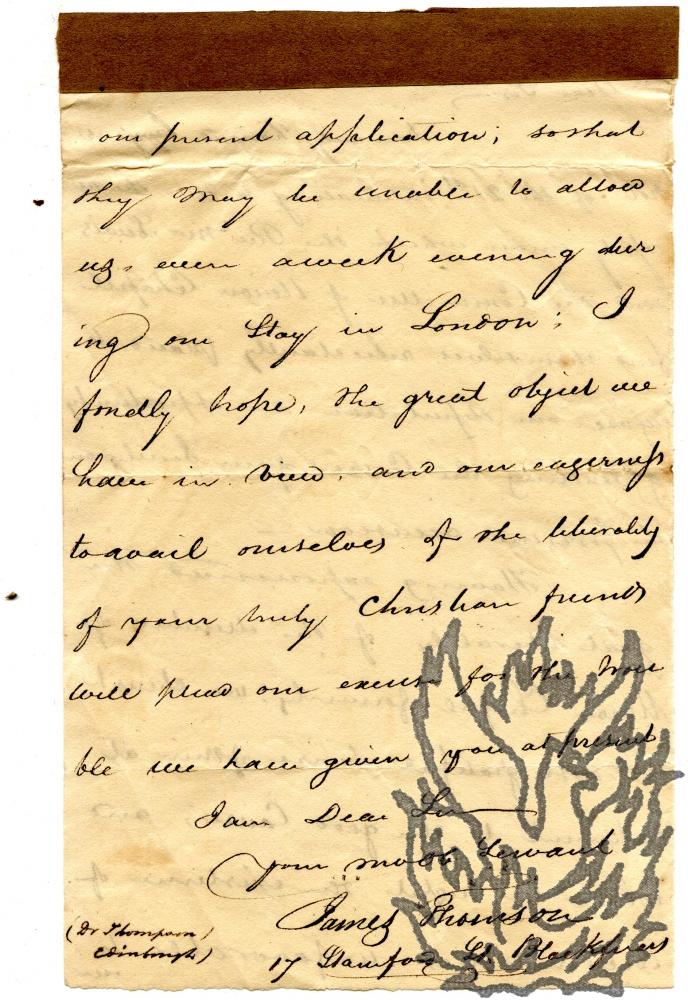 our present application; so that
they may be unable to allow
us, even a week evening dur
ing our stay in London; I
fondly hope, the great object we
have in view, and our eagerness
to avail ourselves of the liberality
of your truly Christian friends
will plead our excuse for the trou
ble we have given you at present
I am Dear Sir
your most Servant
James Thomson
17 Stamford St. Blackfriars
(Dr Thompson)
Edinburgh)